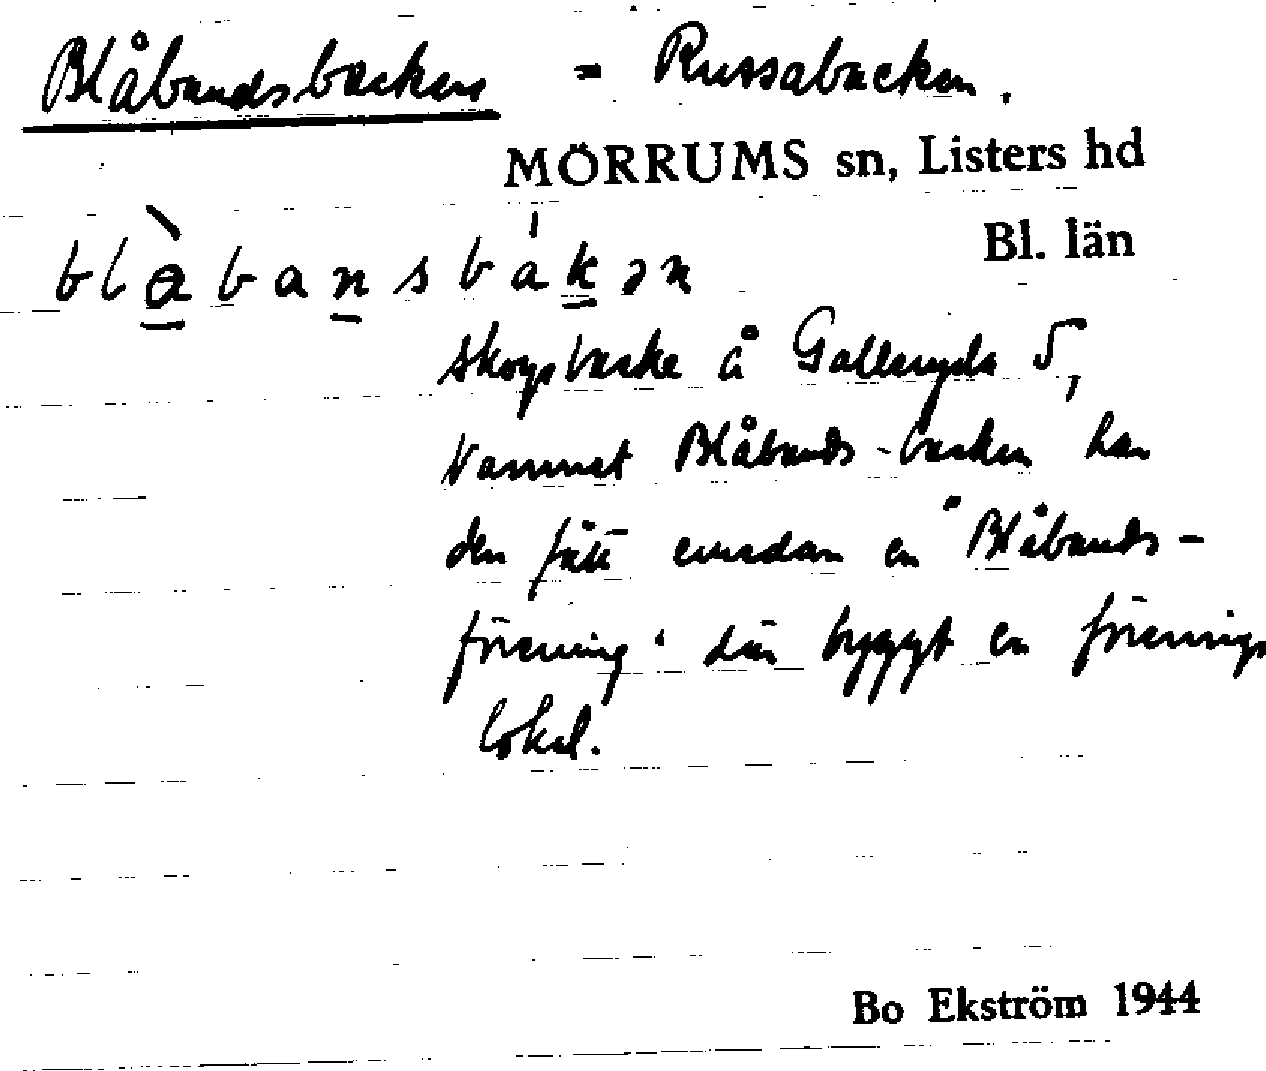 Blåbandsbacken = Russabacken.
MÖRRUMS sn, Listers hd
Bl. län
blàbansbákən
skogsbacke å Galleryda 5,
namnet Blåbands-backen har
den fått emedan en "Blåbands-
förening" där byggt en förenings
lokal.
Bo Ekström 1944